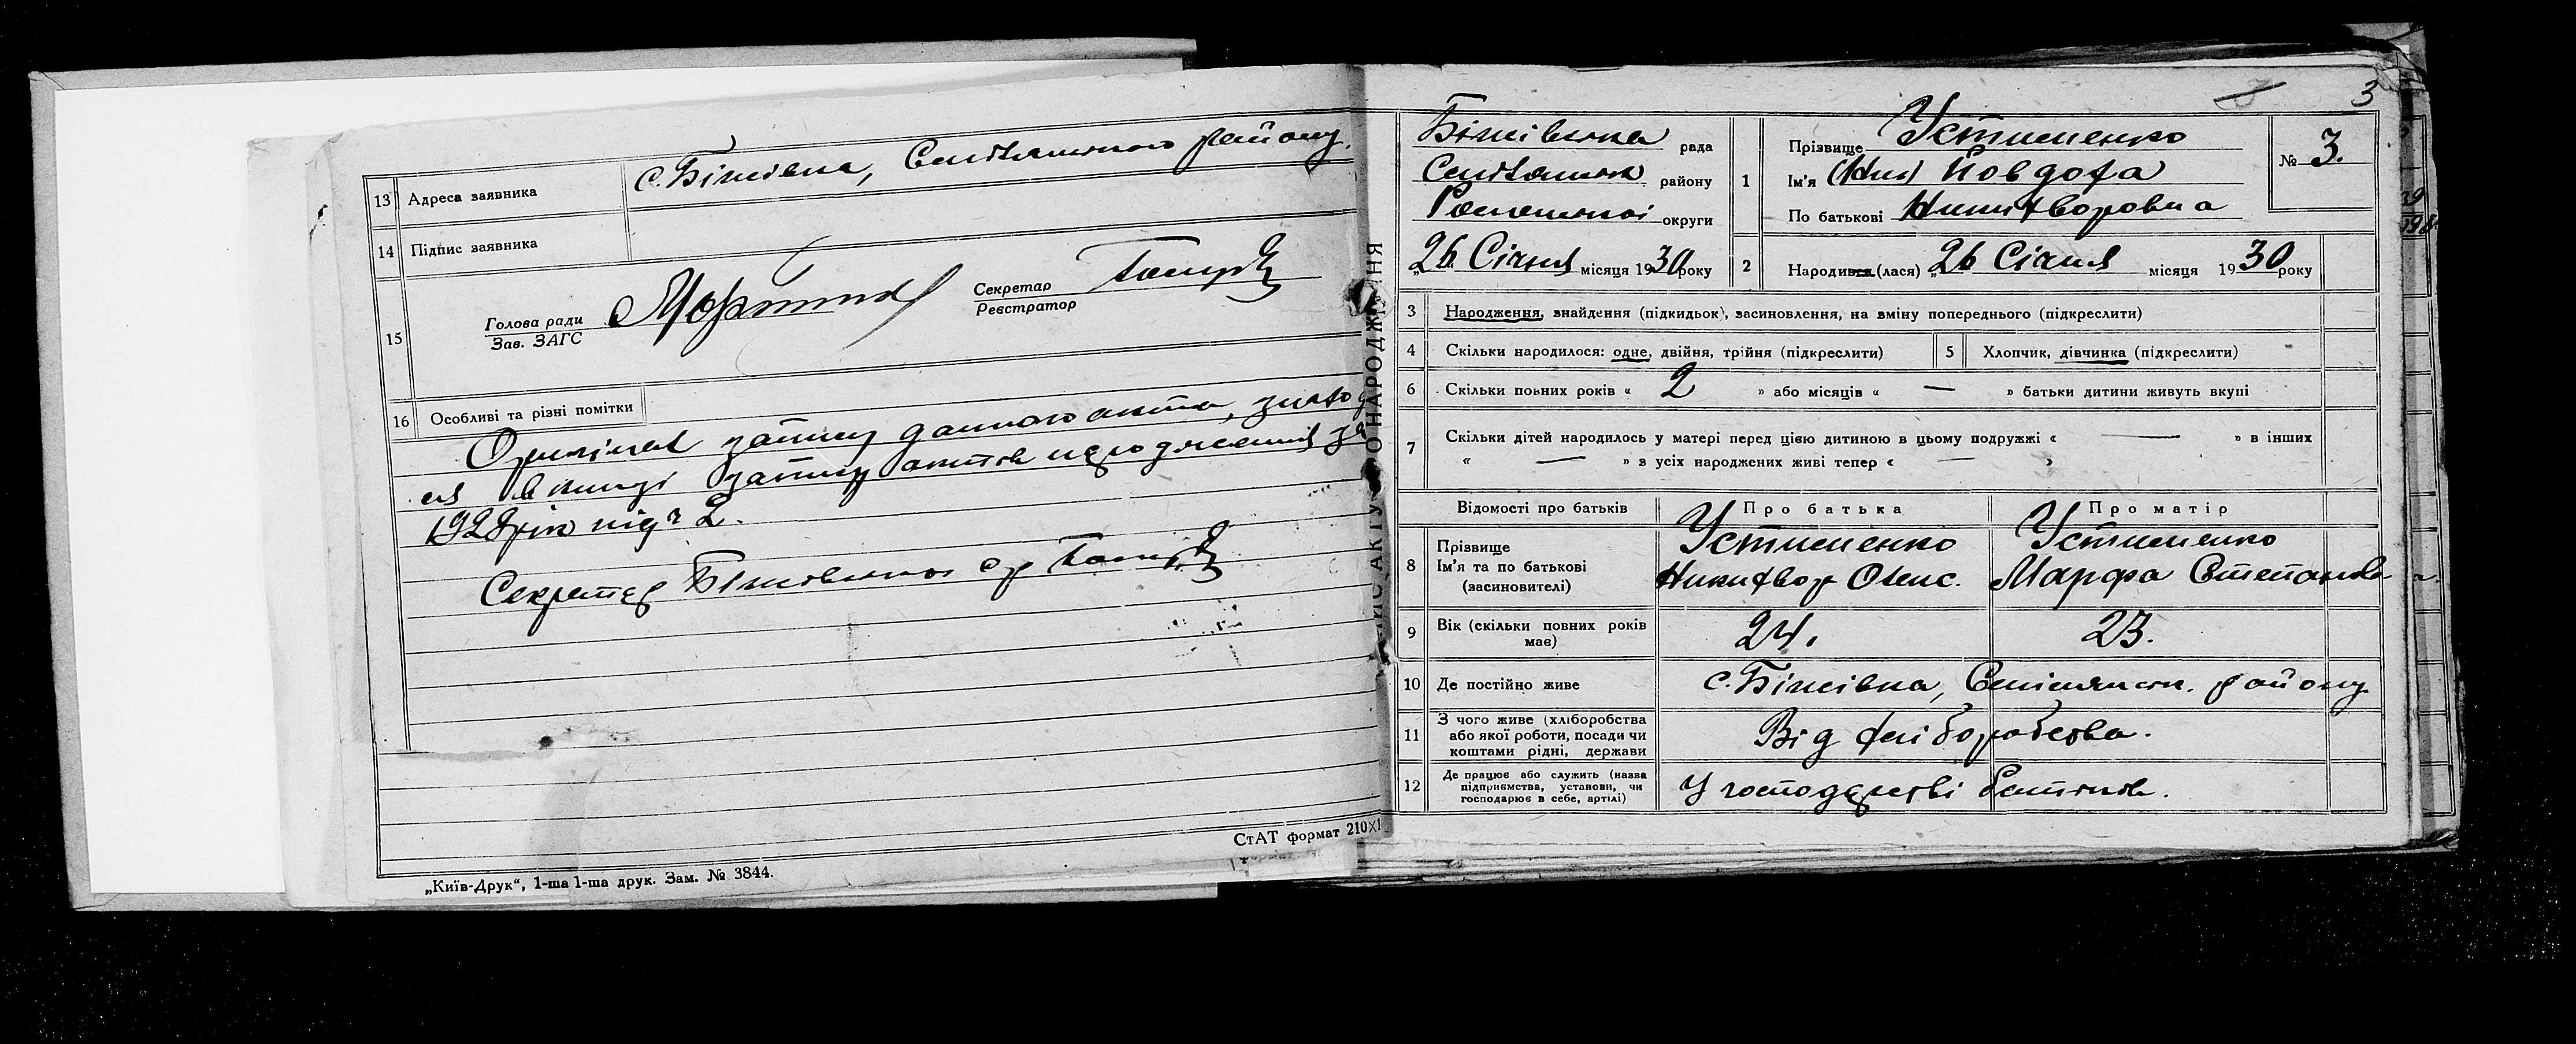 13 Адреса заявника с. Біжівка, району.
14 Підпис заявника
15 Голова ради
Зав. ЗАГС
Секретар
Реєстратор
16 Особливі та різні помітки
Оригінал запису данного акта,
ся в книзі запису актів народження за
рік під № 2.
Секретар
СтАТ формат 210×1
„Київ-Друк", 1-ша 1-ша друк. Зам. № 3844.
3
Біжівська рада
району
Роменської округи
„26 Січня місяця 1930 року
1 Прізвище Устименко
Ім'я Йовдоха
По батькові Никихворовна
№ 3.
2 Народився (лася) „26 Січня місяця 1930 року
3 Народження, знайдення (підкидьок), засиновлення, на зміну попереднього (підкреслити)
4 Скільки народилося: одне, двійня, трійня (підкреслити)
5 Хлопчик, дівчинка (підкреслити)
6 Скільки повних років « 2 » або місяців « — » батьки дитини живуть вкупі
7 Скільки дітей народилось у матері перед цією дитиною в цьому подружжі « — » в інших
« — » з усіх народжених живі тепер « — »
Відомості про батьків Про батька Про матір
8 Прізвище
Ім'я та по батькові
(засновителі)
Устименко
Никихвор
Устименко
Марфа Степановна
9 Вік (скільки повних років
має)
24. 23.
10 Де постійно живе с. Біжівка, району
11 З чого живе (хліборобства
або якої роботи, посади чи
коштами рідні, держави
Від хліборобства.
12 Де працює або служить (назва
підприємства, установи, чи
господарює в себе, артілі)
У господарстві батьків.